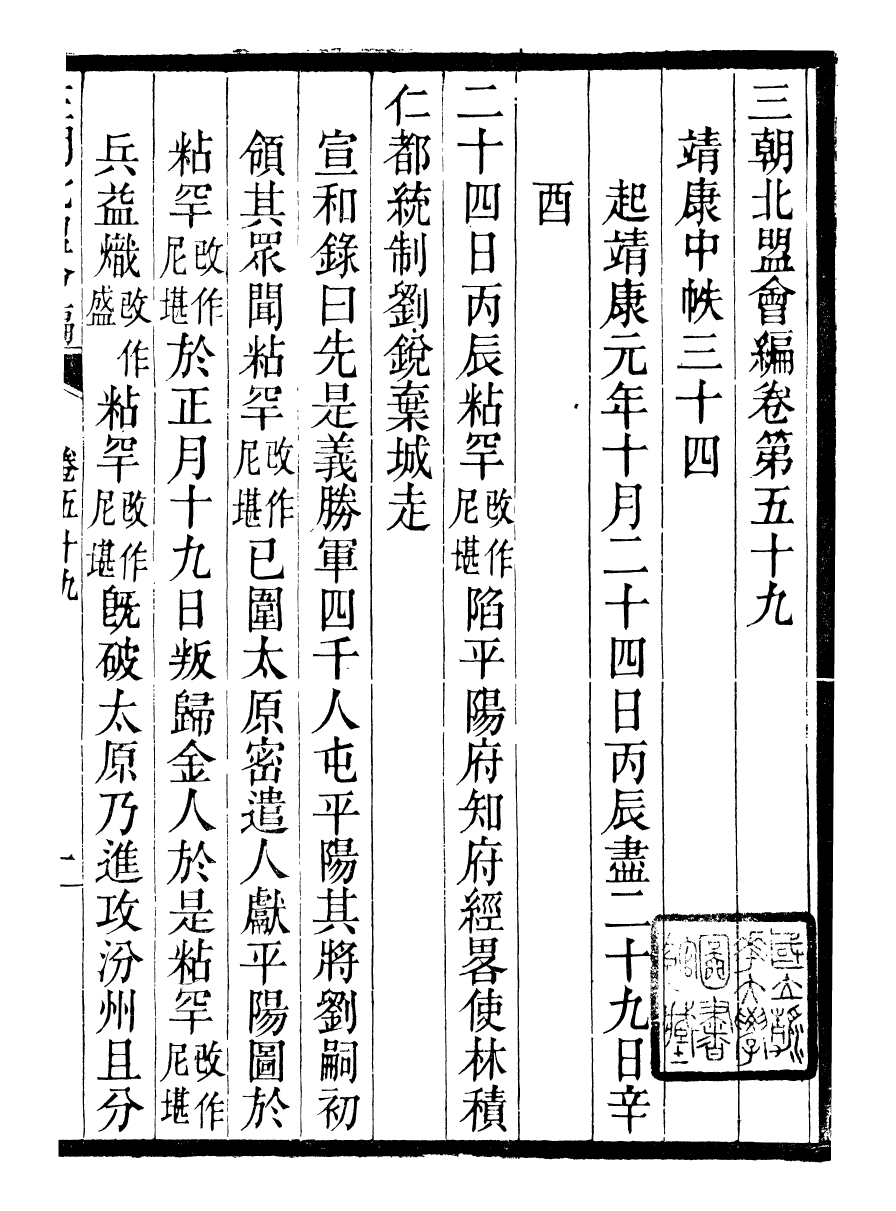 三朝北盟會編卷第五十九
靖康中帙三十四
起靖康元年十月二十四日丙辰盡二十九日辛
酉
二十四日丙辰粘罕改作尼堪陷平陽府知府經畧使林積
仁都統制劉銳棄城走
宣和錄曰先是義勝軍四千人屯平陽其將劉嗣初
領其眾聞粘罕改作尼堪已圍太原密遣人獻平陽圖於
粘罕改作尼堪於正月十九日叛歸金人於是粘罕改作尼堪
兵益熾改作盛粘罕改作尼堪旣破太原乃進攻汾州且分
卷五十九
國立北平大學圖書館藏